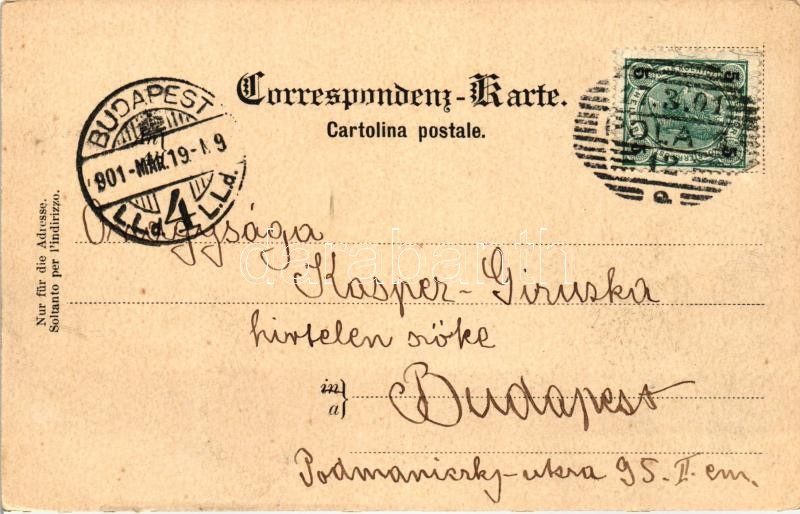 Correspondenz-Karte.
Cartolina postale.
BUDAPEST
901-MÁR.19-
4
5 5
.3.01
POLA
12
P
Nur für die Adresse.
Soltanto per l'indirizzo.
Kasper-Giruska
hirtelen szöke
in
a
Budapest
Podmaniczky-utca 95. II. em.
darabanth